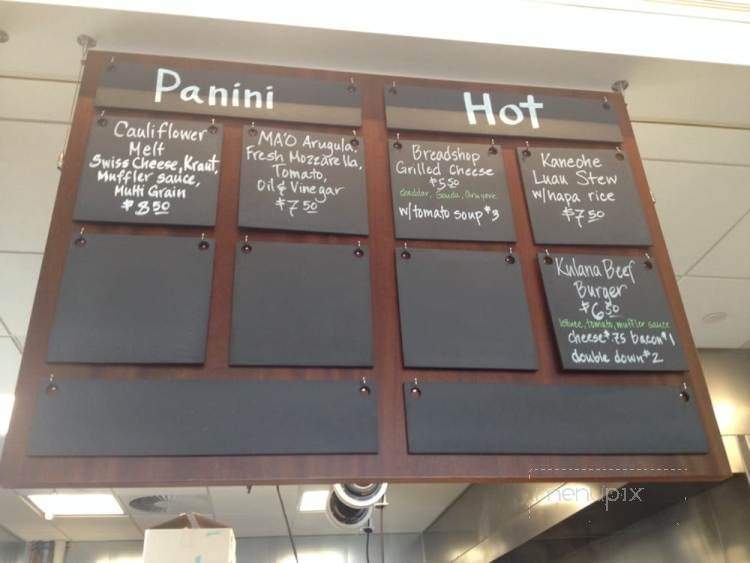 Panini
Cauliflower
Melt
Swiss Cheese, Kraut,
Muffler sauce,
Multi Grain
$8.50
MA'O Arugula,
Fresh Mozzarella,
Tomato,
Oil & Vinegar
$7.50
Hot
Breadshop
Grilled Cheese
$5.50
cheddar, Gouda, Gruyere
w/tomato soup $3
Kaneohe
Luau Stew
w/hapa rice
$7.50
Kulana Beef
Burger
$6.50
lettuce, tomato, muffler sauce
cheese $.75 bacon $1
double down $2
menupix